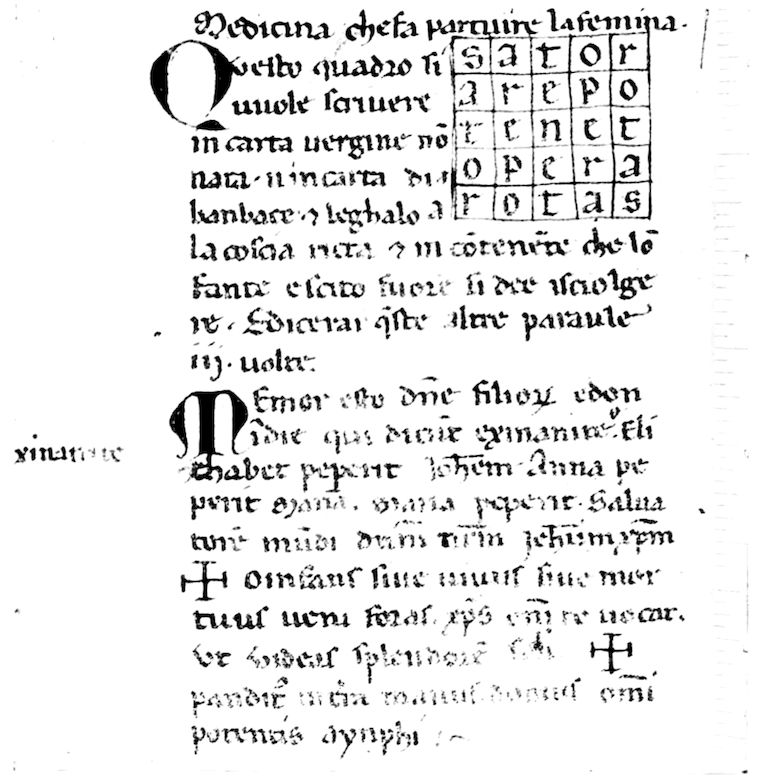 Medicina che fa parturire la femina.
Questo quadro si
vuole scrivere
in carta vergine nō
nata. n in carta di
banbace. ⁊ leghalo a
la coscia ricta ⁊ in cōtenēte che lō
fante escito fuore si dee isciolge
re. Edicerai q̄ste altre paraule
iij. volte.
sator
arepo
tenet
opera
rotas
Memor esto dn̄e filioꝝ edon
ī die qui dicūt exinanite. Eli
xinanite
thabet peperit Joh̄em. Anna pe
perit Mariā. Maria peperit. Salua
torē mūdi dn̄m nr̄m Jeh̄um xp̄m
✠ O infans siue uiuus siue mor
tuus veni foras. xp̄s om̄i te uocat.
Vt videas splendorē ✠
pandit manus om̄i
potentis aynphi